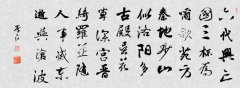 六代興亡
國三杯為
爾歌苑方
秦地少山
似洛陽多
古殿吳花
草深宮晉
綺羅並隨
人事滅東
逝與滄波